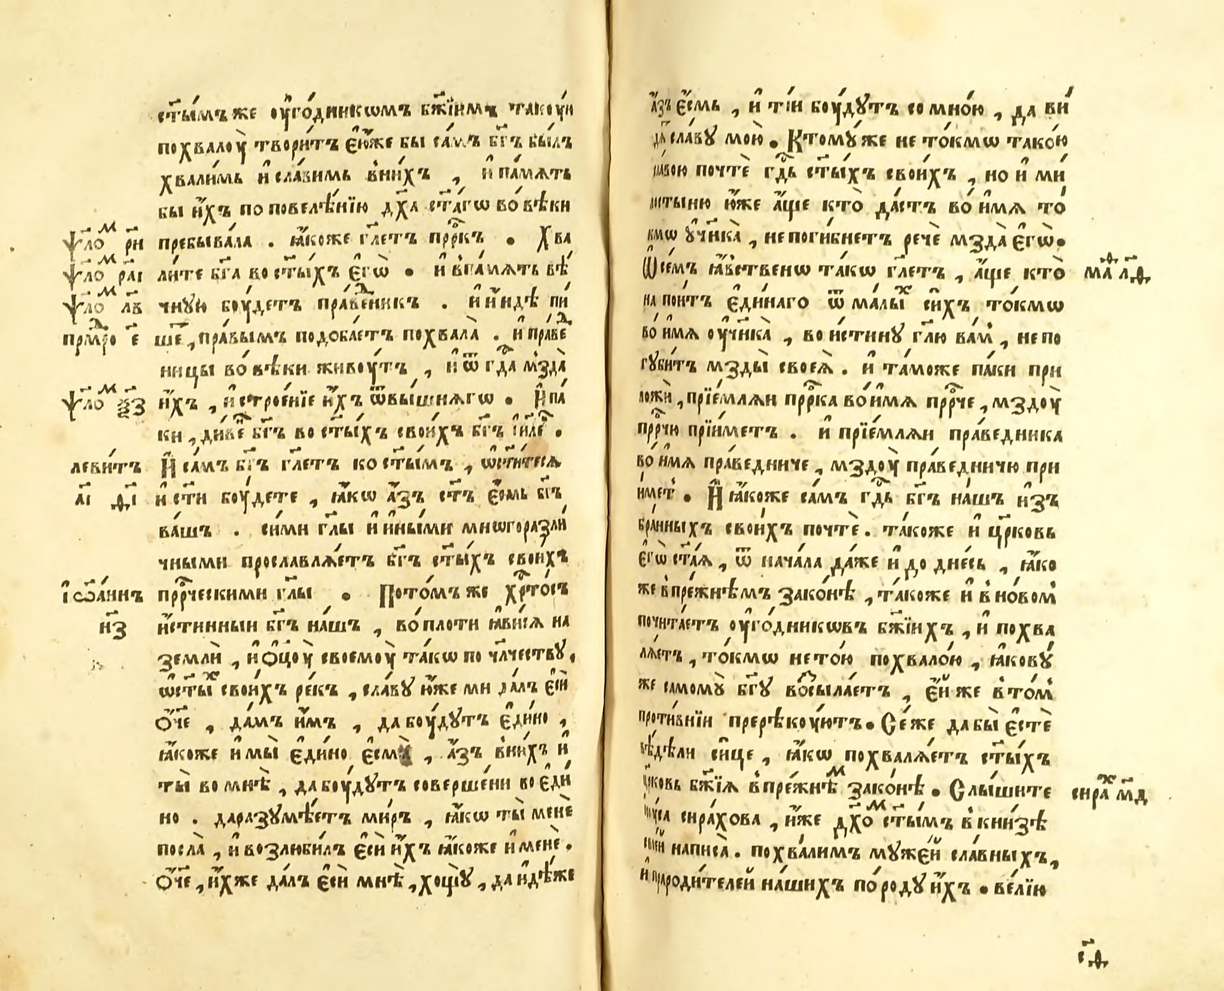 ст҃ы́мъ же оу҆го́дникѡмъ бж҃їимъ такоу́и
похвалоу̀ твори́тъ є҆ю́же бы са́мъ бг҃ъ бы́лъ
хвали́мь и҆ сла́вимь вни́хъ , и҆ па́мять
бы и҆́хъ по повелѣ́нїю дх҃а ст҃а́гѡ во вѣ́ки
ѱало́м рн҃ пребыва́ла . ꙗ҆́коже гл҃етъ прⷪ҇ркъ . Хва
ѱало́м раі҃ ли́те бг҃а во ст҃ы́хъ є҆гѡ̀ . и҆ впа́мять вѣ́
ѱало́м лв҃ чную боу́детъ пра́ведникъ . и҆ и҆ндѣ̀ пи́
прⷨро є҃ ше , пра́вымъ подоба́етъ похвала̀ . и҆ пра́ведⷣ
ницы во вѣ́ки живоу́тъ , и҆ ѿ гдⷭ҇а мзда̀
ѱало́м ѯ҃з и҆́хъ , и҆ строе́нїе и҆́хъ ѿвы́шнѧгѡ . И҆ па́
ки , ди́венъ бг҃ъ во ст҃ы́хъ свои́хъ бг҃ъ і҆и҃левъ .
леви́тъ И҆ са́мъ бг҃ъ гл҃етъ ко ст҃ы́мъ , ѡ҆ст҃и́тесѧ
аі҃ ѳі҃ и҆ ст҃и боу́дете , ꙗ҆́кѡ а҆́зъ ст҃ъ є҆́смь бг҃ъ
ва́шъ . си́ми гл҃ы и҆ и҆ны́ми мно́горазли́
чными прославлѧ́етъ бг҃ъ ст҃ы́хъ свои́хъ
і҆ѡа́ннъ прⷪ҇рческими гл҃ы . Пото́мъ же хрⷭ҇то́съ
и҃з и҆́стинныи бг҃ъ на́шъ , во пло́ти ꙗ҆ви́сѧ на
землѝ , и҆ ѻ҆ц҃оу̀ своемоу̀ та́кѡ по чл҃честву ,
ѡ҆ст҃ы́х свои́хъ ре́къ , сла́ву ю҆́же ми да́лъ є҆сѝ
ѻ҆́ч҃е , да́мъ и҆́мъ , да боу́дутъ є҆ди́но ,
ꙗ҆́коже и҆ мы̀ є҆ди́но є҆смѧ̀ , а҆́зъ вни́хъ и҆
ты̀ во мнѣ̀ , да боу́дутъ соверше́ни во є҆ди́
но . да разумѣ́етъ ми́ръ , ꙗ҆́кѡ ты̀ менѐ
посла̀ , и҆ возлюби́лъ є҆сѝ и҆́хъ ꙗ҆́коже и҆ менѐ .
ѻ҆́ч҃е , и҆́хже да́лъ є҆сѝ мнѣ̀ , хощ̀у , да и҆дѣ́же
а҆́зъ є҆́смь , и҆ ті́и боу́дутъ со мно́ю , да ви́
дѧ сла́ву мою̀ . Ктому́же не то́кмѡ тако́ю
сла́вою почтѐ гдⷭ҇ь ст҃ы́хъ свои́хъ , но и҆ ми́
лостыню и҆́же а҆́ще кто̀ да́стъ во и҆́мѧ то́
кмѡ ѹ҆чн҃ка̀ , непоги́бнетъ речѐ мзда̀ є҆гѡ̀ .
Ѿ сем ꙗ҆́вственѡ та́кѡ гл҃етъ , а҆́ще кто̀ маⷴ лѳ҃
напои́тъ є҆ди́наго ѿ ма́лы́х си́хъ то́кмѡ
во и҆́мѧ оу҆чн҃ка̀ , во и҆́стину гл҃ю ва́мъ , не по
губи́тъ мзды̀ своеѧ̀ . и҆ та́може па́ки при
ложѝ , прїе́млѧи прⷪ҇рка во и҆́мѧ прⷪ҇рче , мздоу̀
прⷪ҇рчи прїи́метъ . и҆ прїе́млѧи пра́ведника
во и҆́мѧ пра́ведниче , мздоу̀ пра́ведничю при
и́метъ . И҆ ꙗ҆́коже са́мъ гдⷭ҇ь бг҃ъ на́шъ и҆́зъ
бра́нныхъ свои́хъ почтѐ . та́коже и҆ цр҃ковь
є҆гѡ̀ ст҃а́ѧ , ѿ нача́ла да́же и҆ до дне́сь , ꙗ҆́ко
же в пре́жнѣмъ зако́нѣ , та́коже и҆ в но́вомъ
почита́етъ оу҆го́дникѡвъ бж҃їихъ , и҆ похва
лѧ́етъ , то́кмѡ не то́ю похвало́ю , ꙗ҆кову́
же самому̀ бг҃у восыла́етъ , є҆́й же в то́мъ
проти́внїи прерѣкоу́ютъ . Се́же да бы̀ є҆стѐ
вѣ́дѣли си́це , ꙗ҆́кѡ похвалѧ́етъ ст҃ы́хъ
цр҃ковь бж҃їѧ в пре́жнѣм зако́нѣ . Слы́шите сираⷯ мд҃
і҆су́са сира́хова , и҆́же дх҃ом ст҃ы́мъ в кни́зѣ
свое́й написа̀ . похва́лимъ муже́й сла́вныхъ ,
и҆ прароди́телей на́шихъ по́роду и҆́хъ . ве́лїю
сѳ҃